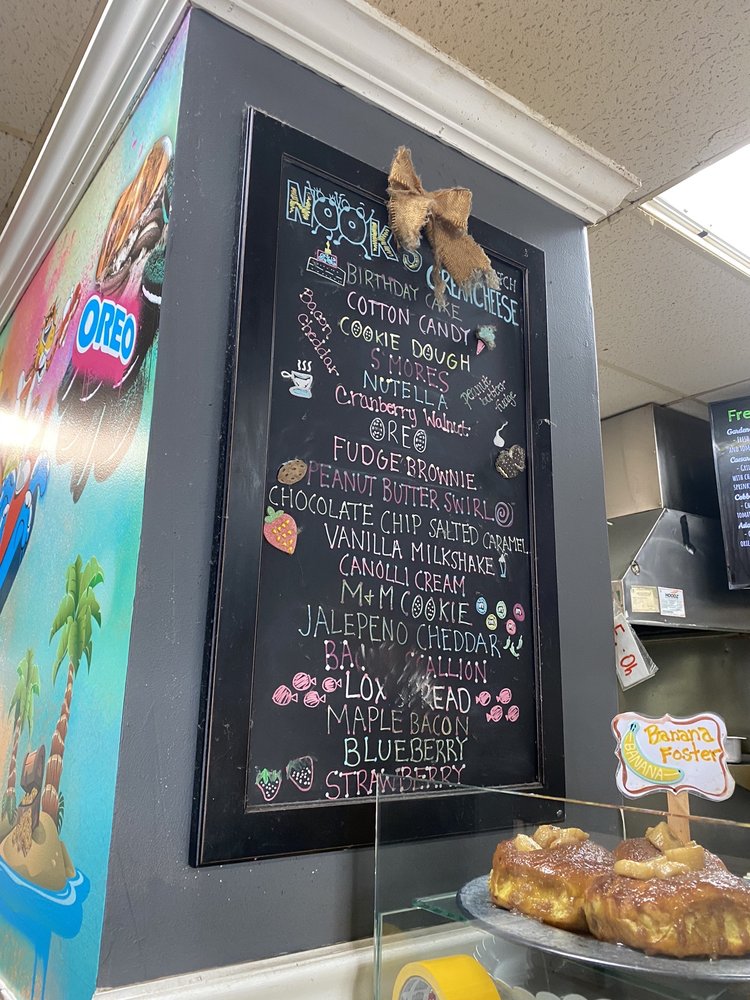 NOOK'S
CREAMCHEESE
BIRTHDAY CAKE
COTTON CANDY
Bacon
Cheddar
COOKIE DOUGH
S'MORES
NUTELLA
peanut
butter
fudge
Cranberry Walnut
OREO
FUDGE BROWNIE
PEANUT BUTTER SWIRL
CHOCOLATE CHIP SALTED CARAMEL
VANILLA MILKSHAKE
CANOLLI CREAM
M+M COOKIE
JALEPENO CHEDDAR
LOX
MAPLE BACON
BLUEBERRY
STRAWBERRY
OREO
Banana
Foster
BANANA